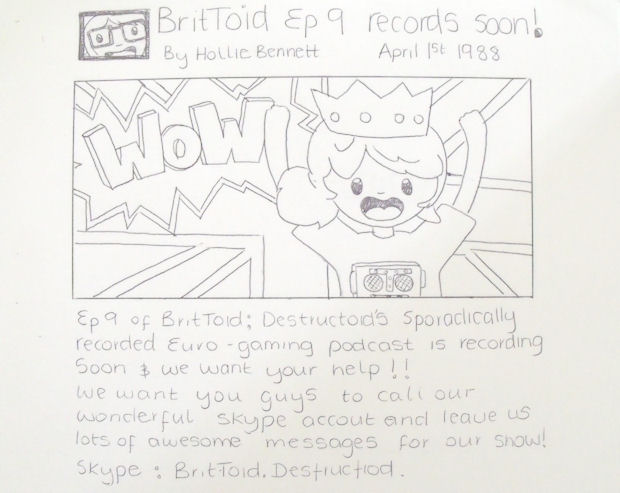 BritToid Ep 9 records soon!
By Hollie Bennett April 1st 1988
WOW
Ep 9 of BritToid; Destructoid's Sporadically
recorded Euro-gaming podcast is recording
Soon & we want your help!!
We want you guys to call our
wonderful Skype accout and leave us
lots of awesome messages for our show!
Skype : BritToid.Destructiod.